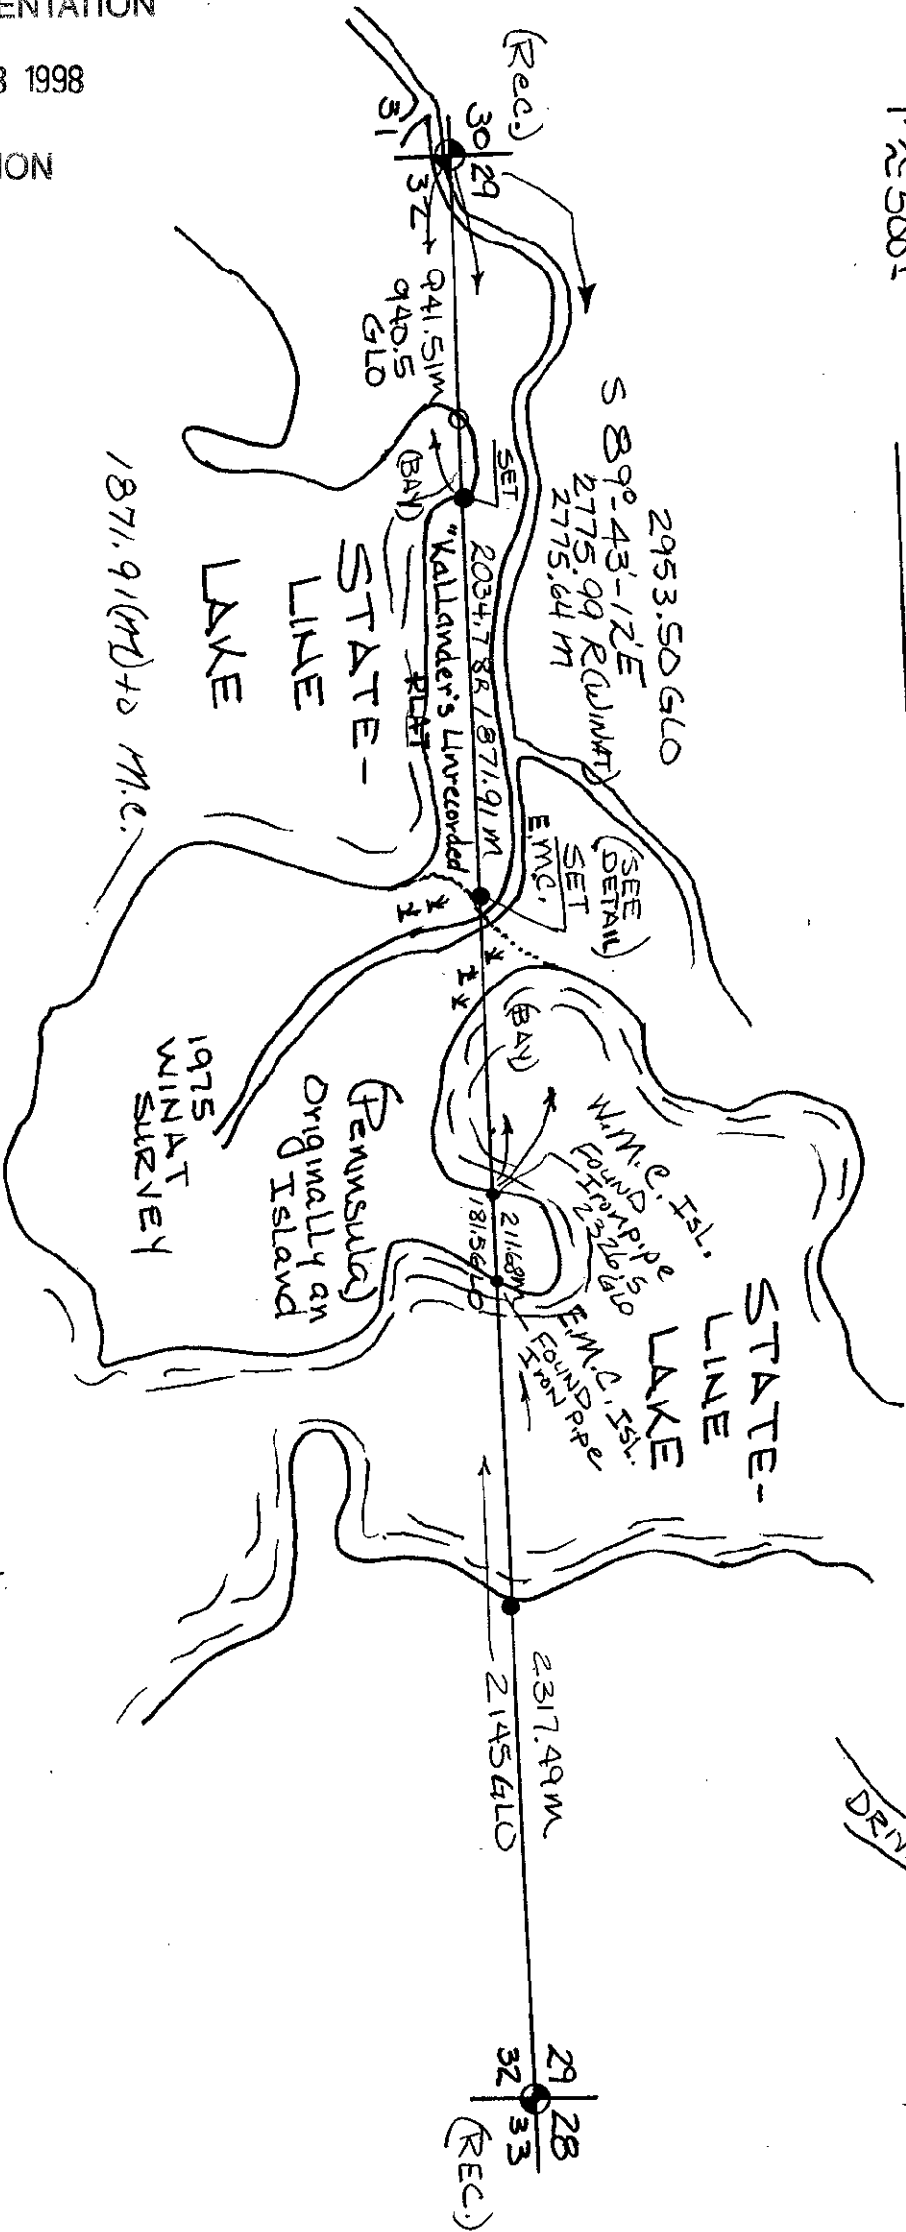 ENTATION
8 1998
ION
1"≈500±
(Rec.)
30 29
31 32
941.51M
940.5
GLO
(BAY)
SET
2953.50 GLO
S 89°-43'-12"E
2775.99 R (WINAT)
2775.64 M
2034.78R 1871.91 M
"Kallander's Unrecorded
PLAT
STATE-
LINE
LAKE
1871.91(M) to M.C.
(SEE
DETAIL)
SET
E.M.C.
1975
WINAT
SURVEY
(BAY)
(Peninsula)
Originally an
Island
W.M.C. ISL.
FOUND
Iron pipe
2326.5
GLO
211.68M
181.5GLO
E.M.C. ISL.
FOUND
Iron Pipe
STATE-
LINE
LAKE
2317.49M
2145 GLO
DRIV
29 28
32 33
(REC.)